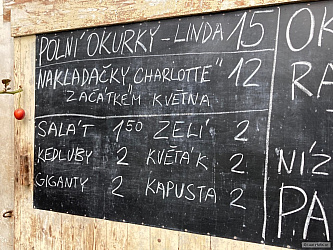 POLNÍ "OKURKY - LINDA 15
NAKLADAČKY "CHARLOTTE" 12
ZAČÁTKEM KVĚTNA
SALÁT 1 50 ZELÍ 2
KEDLUBY 2 KVĚTÁK 2
GIGANTY 2 KAPUSTA 2
OK
RA
NÍZ
PA